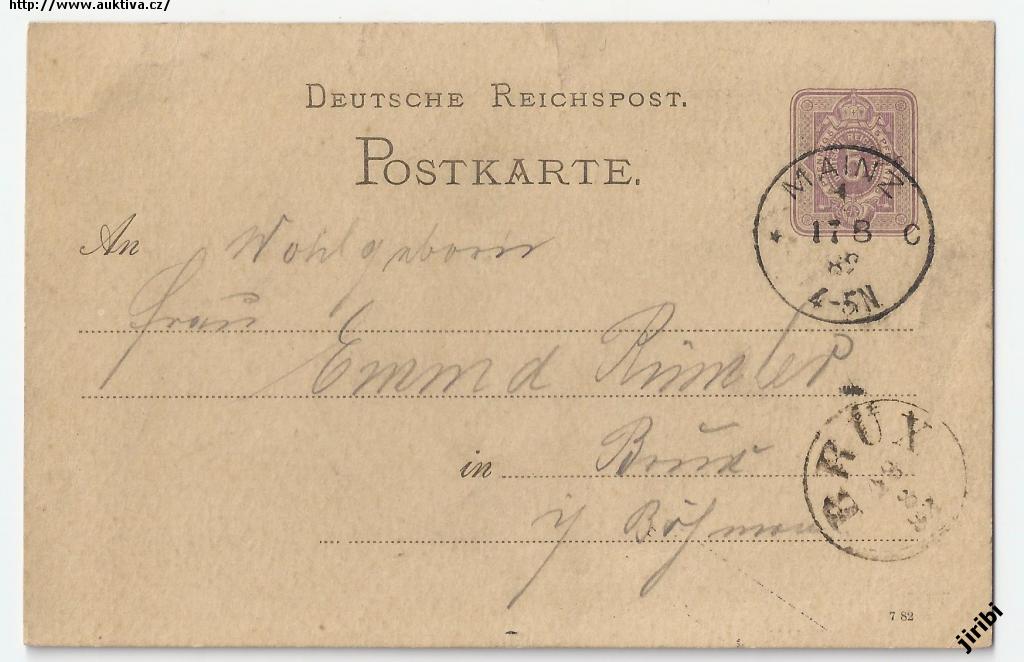 http://www.auktiva.cz/
DEUTSCHE REICHSPOST.
POSTKARTE.
MAINZ
1
* 17 8 C
85
4-5N
An Wohlgeboren
Frau
Emma
BRÜX
in Brüx
i/ Böhmen
7 82
jiribi